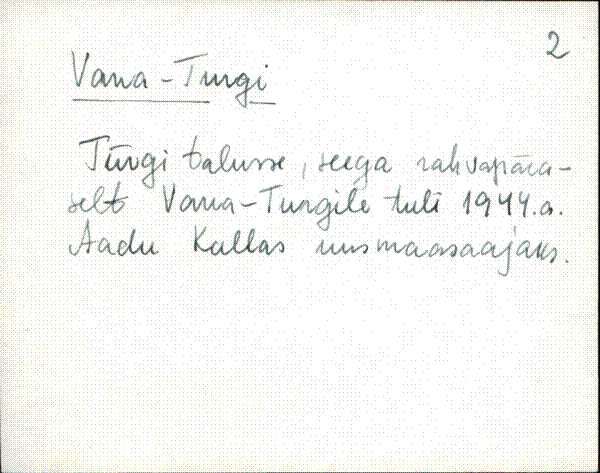 2
Vana-Turgi
Türgi talusse, seega rahvapära-
selt Vana-Turgile tuli 1944.a.
Aadu Kallas uusmaasaajaks.